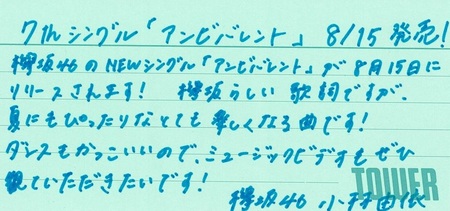 7th シングル「アンビバレント」 8/15 発売!
欅坂46のNEWシングル「アンビバレント」が8月15日に
リリースされます! 欅坂らしい歌詞ですが、
夏にもぴったりなとても楽しくなる曲です!
ダンスもかっこいいので、ミュージックビデオもぜひ
観ていただきたいです!
TOWER
欅坂46 小林由依